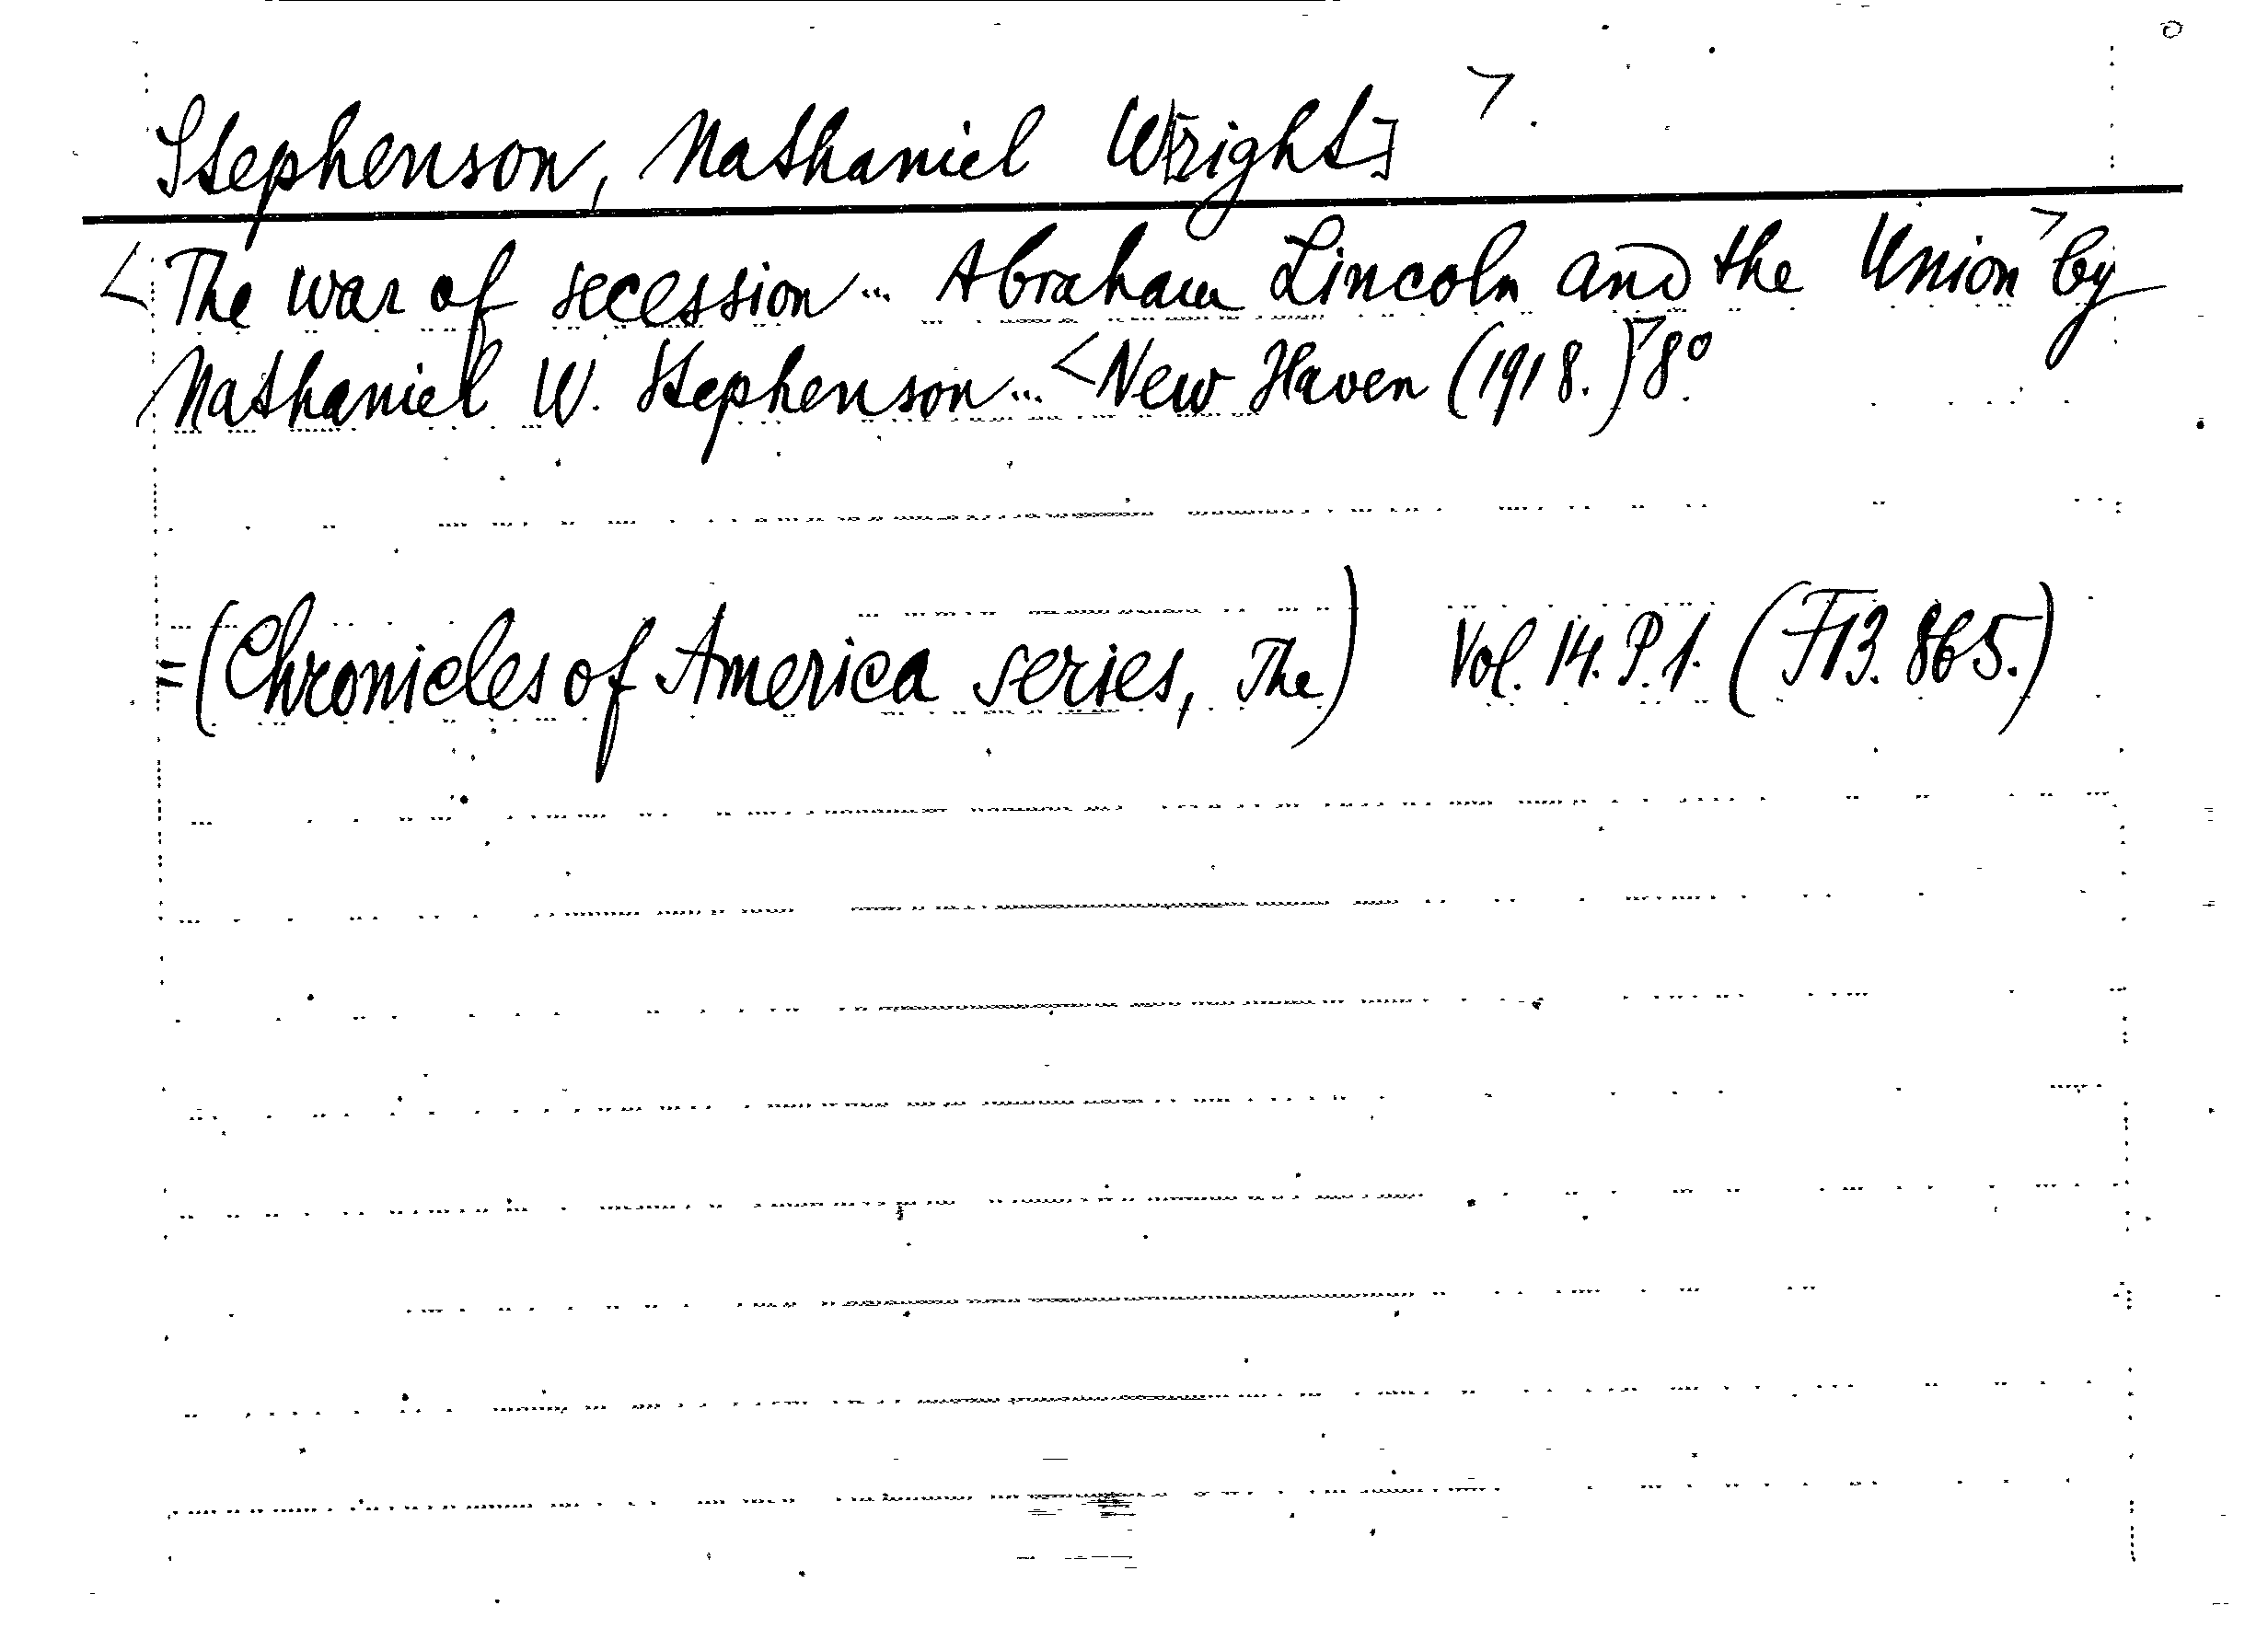 Stephenson, Nathaniel W[right] >
< The war of secession... Abraham Lincoln and the Union > by
Nathaniel W. Stephenson... < New Haven (1918.) > 8°.
= (Chronicles of America series, The) Vol. 14. P. 1. (F13. 865.)